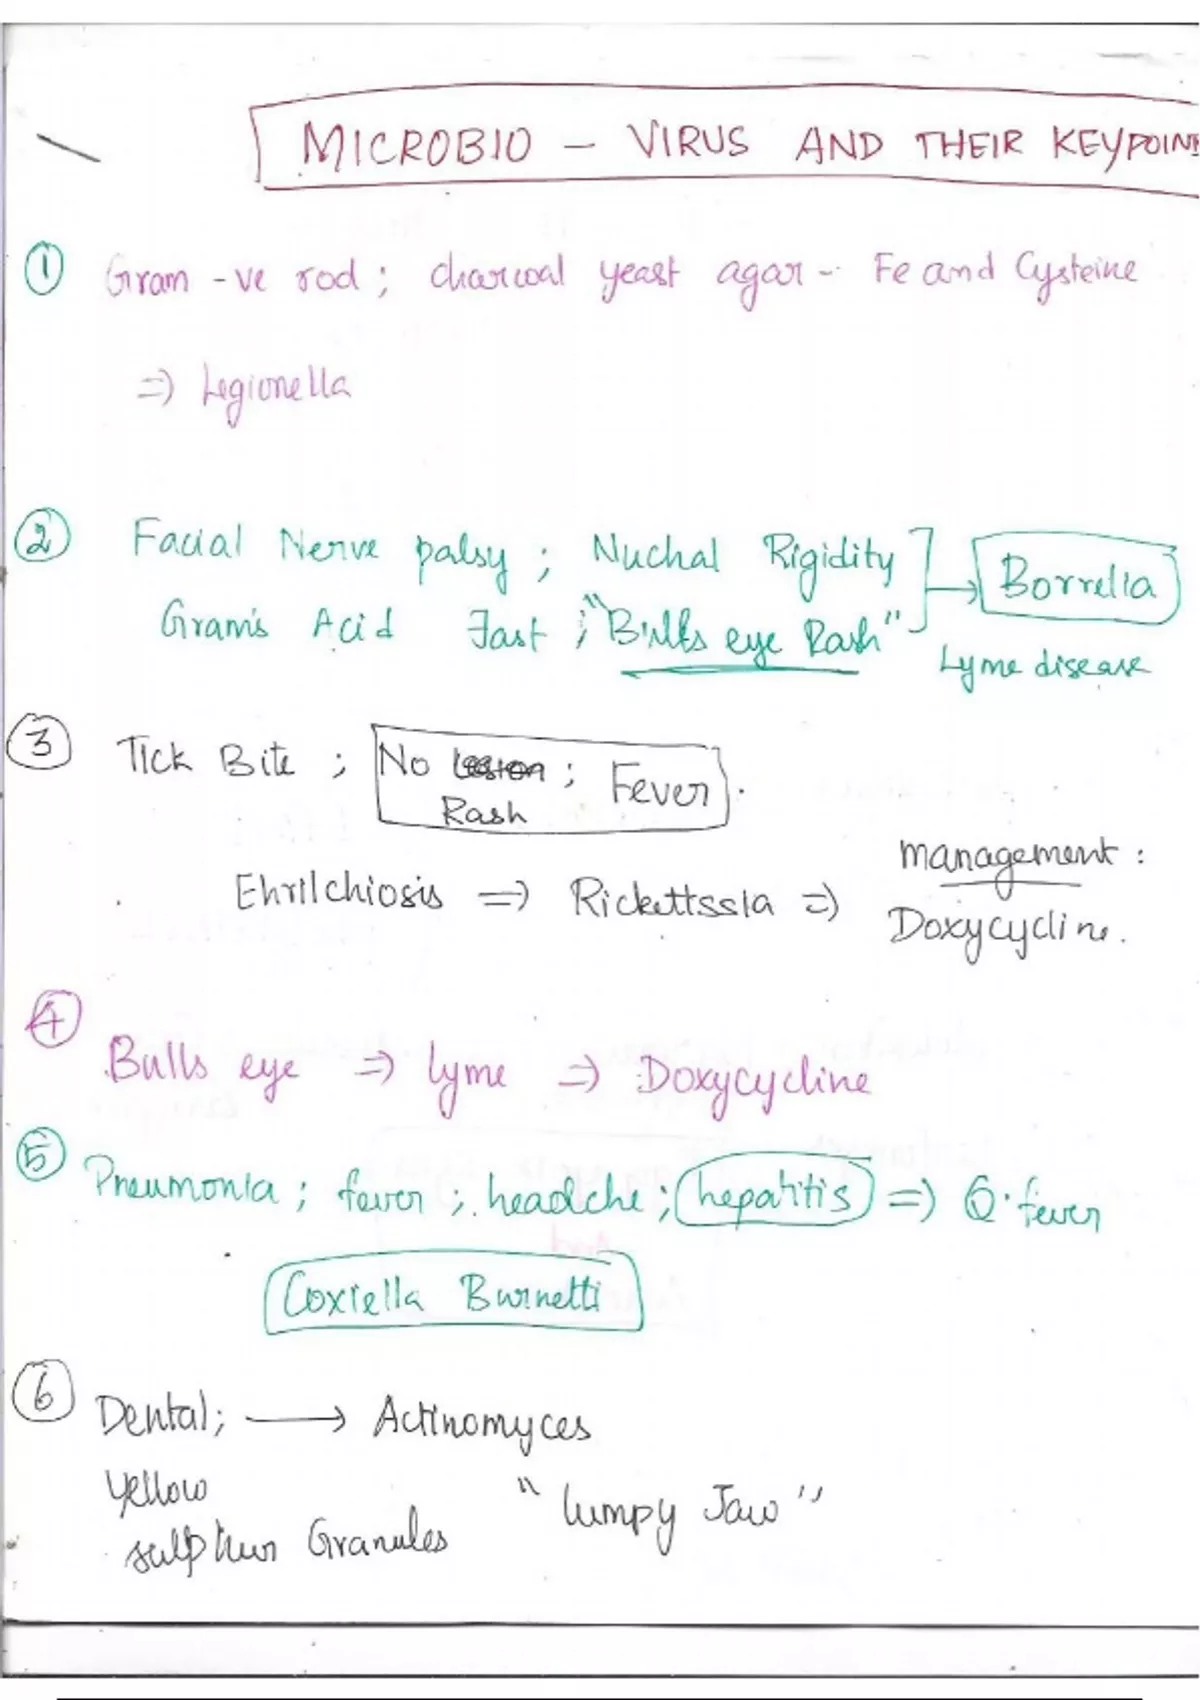 MICROBIO - VIRUS AND THEIR KEYPOIN
① Gram -ve rod ; charcoal yeast agar - Fe and Cysteine
=> Legionella
② Facial Nerve palsy ; Nuchal Rigidity
Gram's Acid Fast ; "Bulls eye Rash" → Borrelia
Lyme disease
③ Tick Bite ; No Lesion ; Fever .
Rash
management :
Ehrilchiosis => Rickettssia =>
Doxycycline.
④ Bulls eye => lyme => Doxycycline
⑤ Pneumonia ; fever ; headche ; hepatitis => Q. fever
Coxiella Burnetti
⑥ Dental; → Actinomyces
yellow
sulphur Granules "lumpy Jaw"